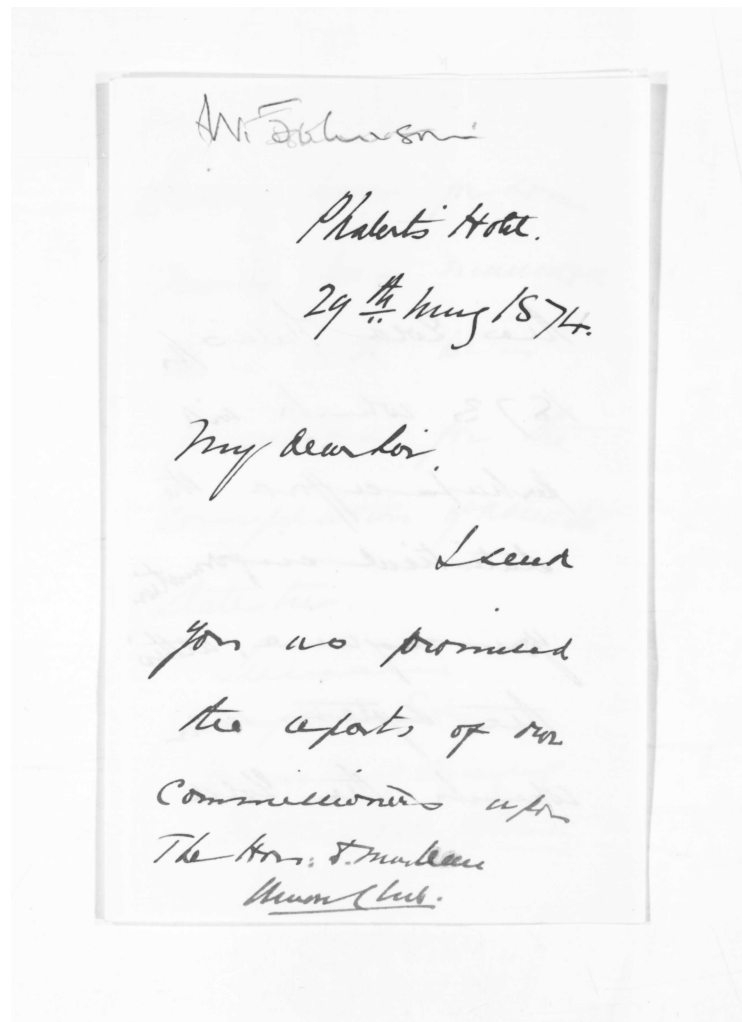 Hotel.
29th May 1874.
My dear Sir.
I send
you as promised
the reports of our
Commissioners upon
The Hon: D. McLean
Union Club.